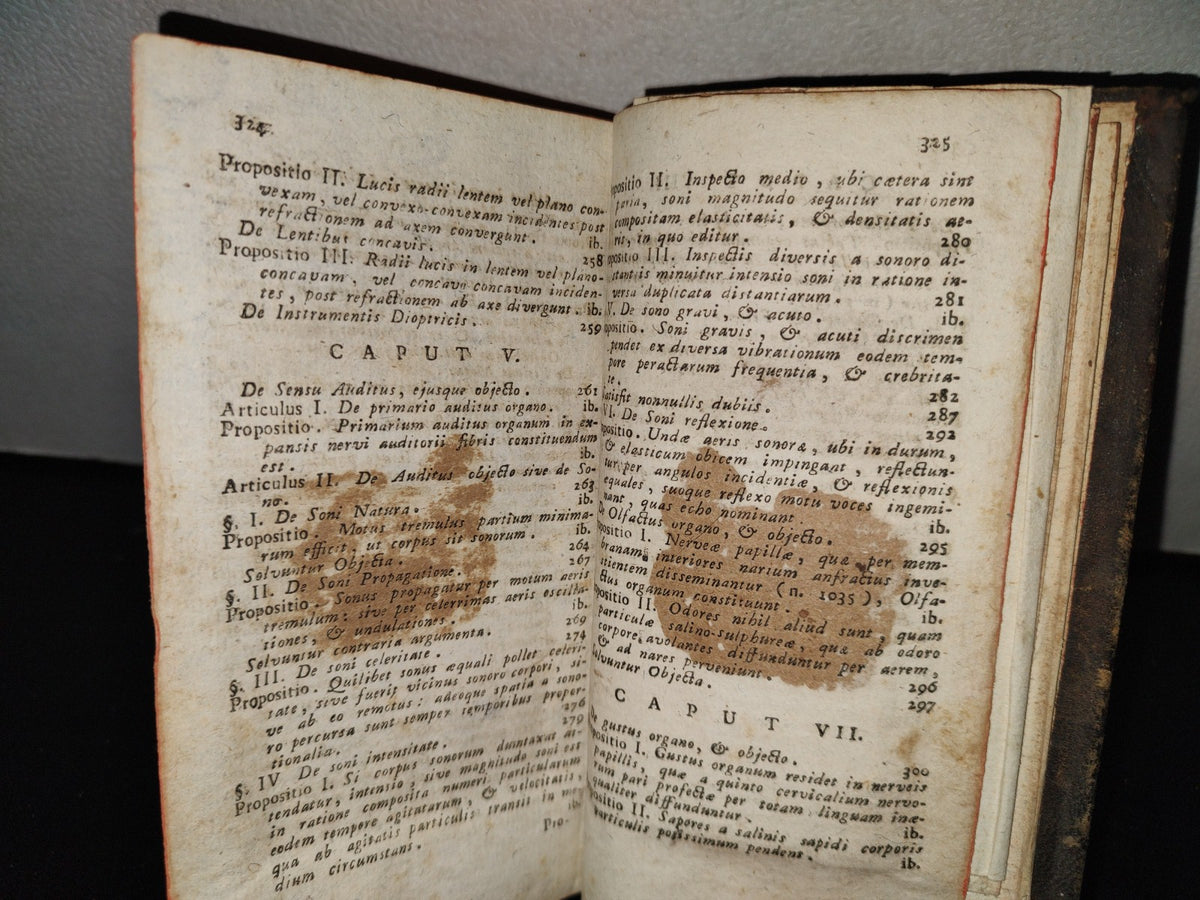 324
Propositio II. Lucis radii lentem vel plano con-
vexam, vel convexo-convexam incidentes post
refractionem ad axem convergunt. ib.
De Lentibus concavis. 258
Propositio III. Radii lucis in lentem vel plano-
concavam, vel concavo concavam inciden-
tes, post refractionem ab axe divergunt. ib.
De Instrumentis Dioptricis. 259
CAPUT V.
De Sensu Auditus, ejusque objecto. 261
Articulus I. De primario auditus organo. ib.
Propositio. Primarium auditus organum in ex-
pansis nervi auditorii fibris constituendum
est. ib.
Articulus II. De Auditus objecto sive de So-
no. 263
§. I. De Soni Natura. ib.
Propositio. Motus tremulus partium minima-
rum efficit, ut corpus sit sonorum. ib.
Solvuntur Objecta. 264
§. II. De Soni Propagatione. 267
Propositio. Sonus propagatur per motum aeris
tremulum: sive per celerrimas aeris oscilla-
tiones, & undulationes. ib.
Solvuntur contraria argumenta. 269
§. III. De soni celeritate. 274
Propositio. Quilibet sonus æquali pollet celeri-
tate, sive fuerit vicinus sonoro corpori, si-
ve ab eo remotus: adeoque spatia a sono-
ro percursa sunt semper temporibus propor-
tionalia. 276
§. IV De soni intensitate. 279
Propositio I. Si corpus sonorum dumtaxat at-
tendatur, intensio, sive magnitudo soni est
in ratione composita numeri particularum
eodem tempore agitatarum, & velocitatis,
qua ab agitatis particulis transit in me-
dium circumstans. ib.
Pro-
325
positio II. Inspecto medio, ubi cætera sint
paria, soni magnitudo sequitur rationem
compositam elasticitatis, & densitatis ae-
ris, in quo editur. 280
positio III. Inspectis diversis a sonoro di-
stantiis minuitur intensio soni in ratione in-
versa duplicata distantiarum. 281
V. De sono gravi, & acuto. ib.
positio. Soni gravis, & acuti discrimen
pendet ex diversa vibrationum eodem tem-
pore peractarum frequentia, & crebrita-
te. 282
Satisfit nonnullis dubiis. 287
VI. De Soni reflexione. 292
positio. Undæ aeris sonoræ, ubi in durum,
& elasticum obicem impingant, reflectun-
tur per angulos incidentiæ, & reflexionis
equales, suoque reflexo motu voces ingemi-
nant, quas echo nominant. ib.
De Olfactus organo, & objecto. 295
positio I. Nerveæ papillæ, quæ per mem-
branam interiores narium anfractus inve-
stientem disseminantur (n. 1035), Olfa-
ctus organum constituunt. ib.
positio II. Odores nihil aliud sunt, quam
particulæ salino-sulphureæ, quæ ab odoro
corpore avolantes diffunduntur per aerem,
& ad nares perveniunt. 296
Solvuntur Objecta. 297
CAPUT VII.
De gustus organo, & objecto. 300
positio I. Gustus organum residet in nerveis
papillis, quæ a quinto cervicalium nervo-
rum pari profectæ per totam linguam inæ-
qualiter diffunduntur. ib.
positio II. Sapores a salinis sapidi corporis
particulis potissimum pendent. ib.